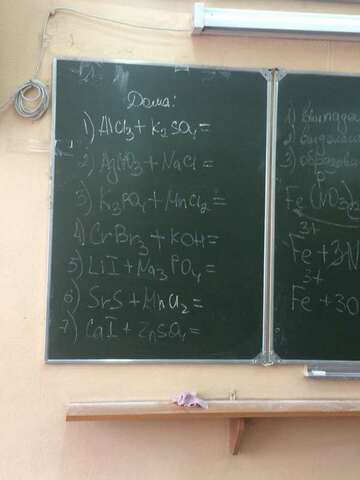 Дома:
1) AlCl₃ + K₂SO₄ =
2) AgNO₃ + NaCl =
3) K₃PO₄ + MnCl₂ =
4) CrBr₃ + KOH =
5) LiI + Na₃PO₄ =
6) SrS + MnCl₂ =
7) CaI + ZnSO₄ =
1)
2)
3)
Fe(NO₃)
3+
Fe +
3+
Fe + 3O